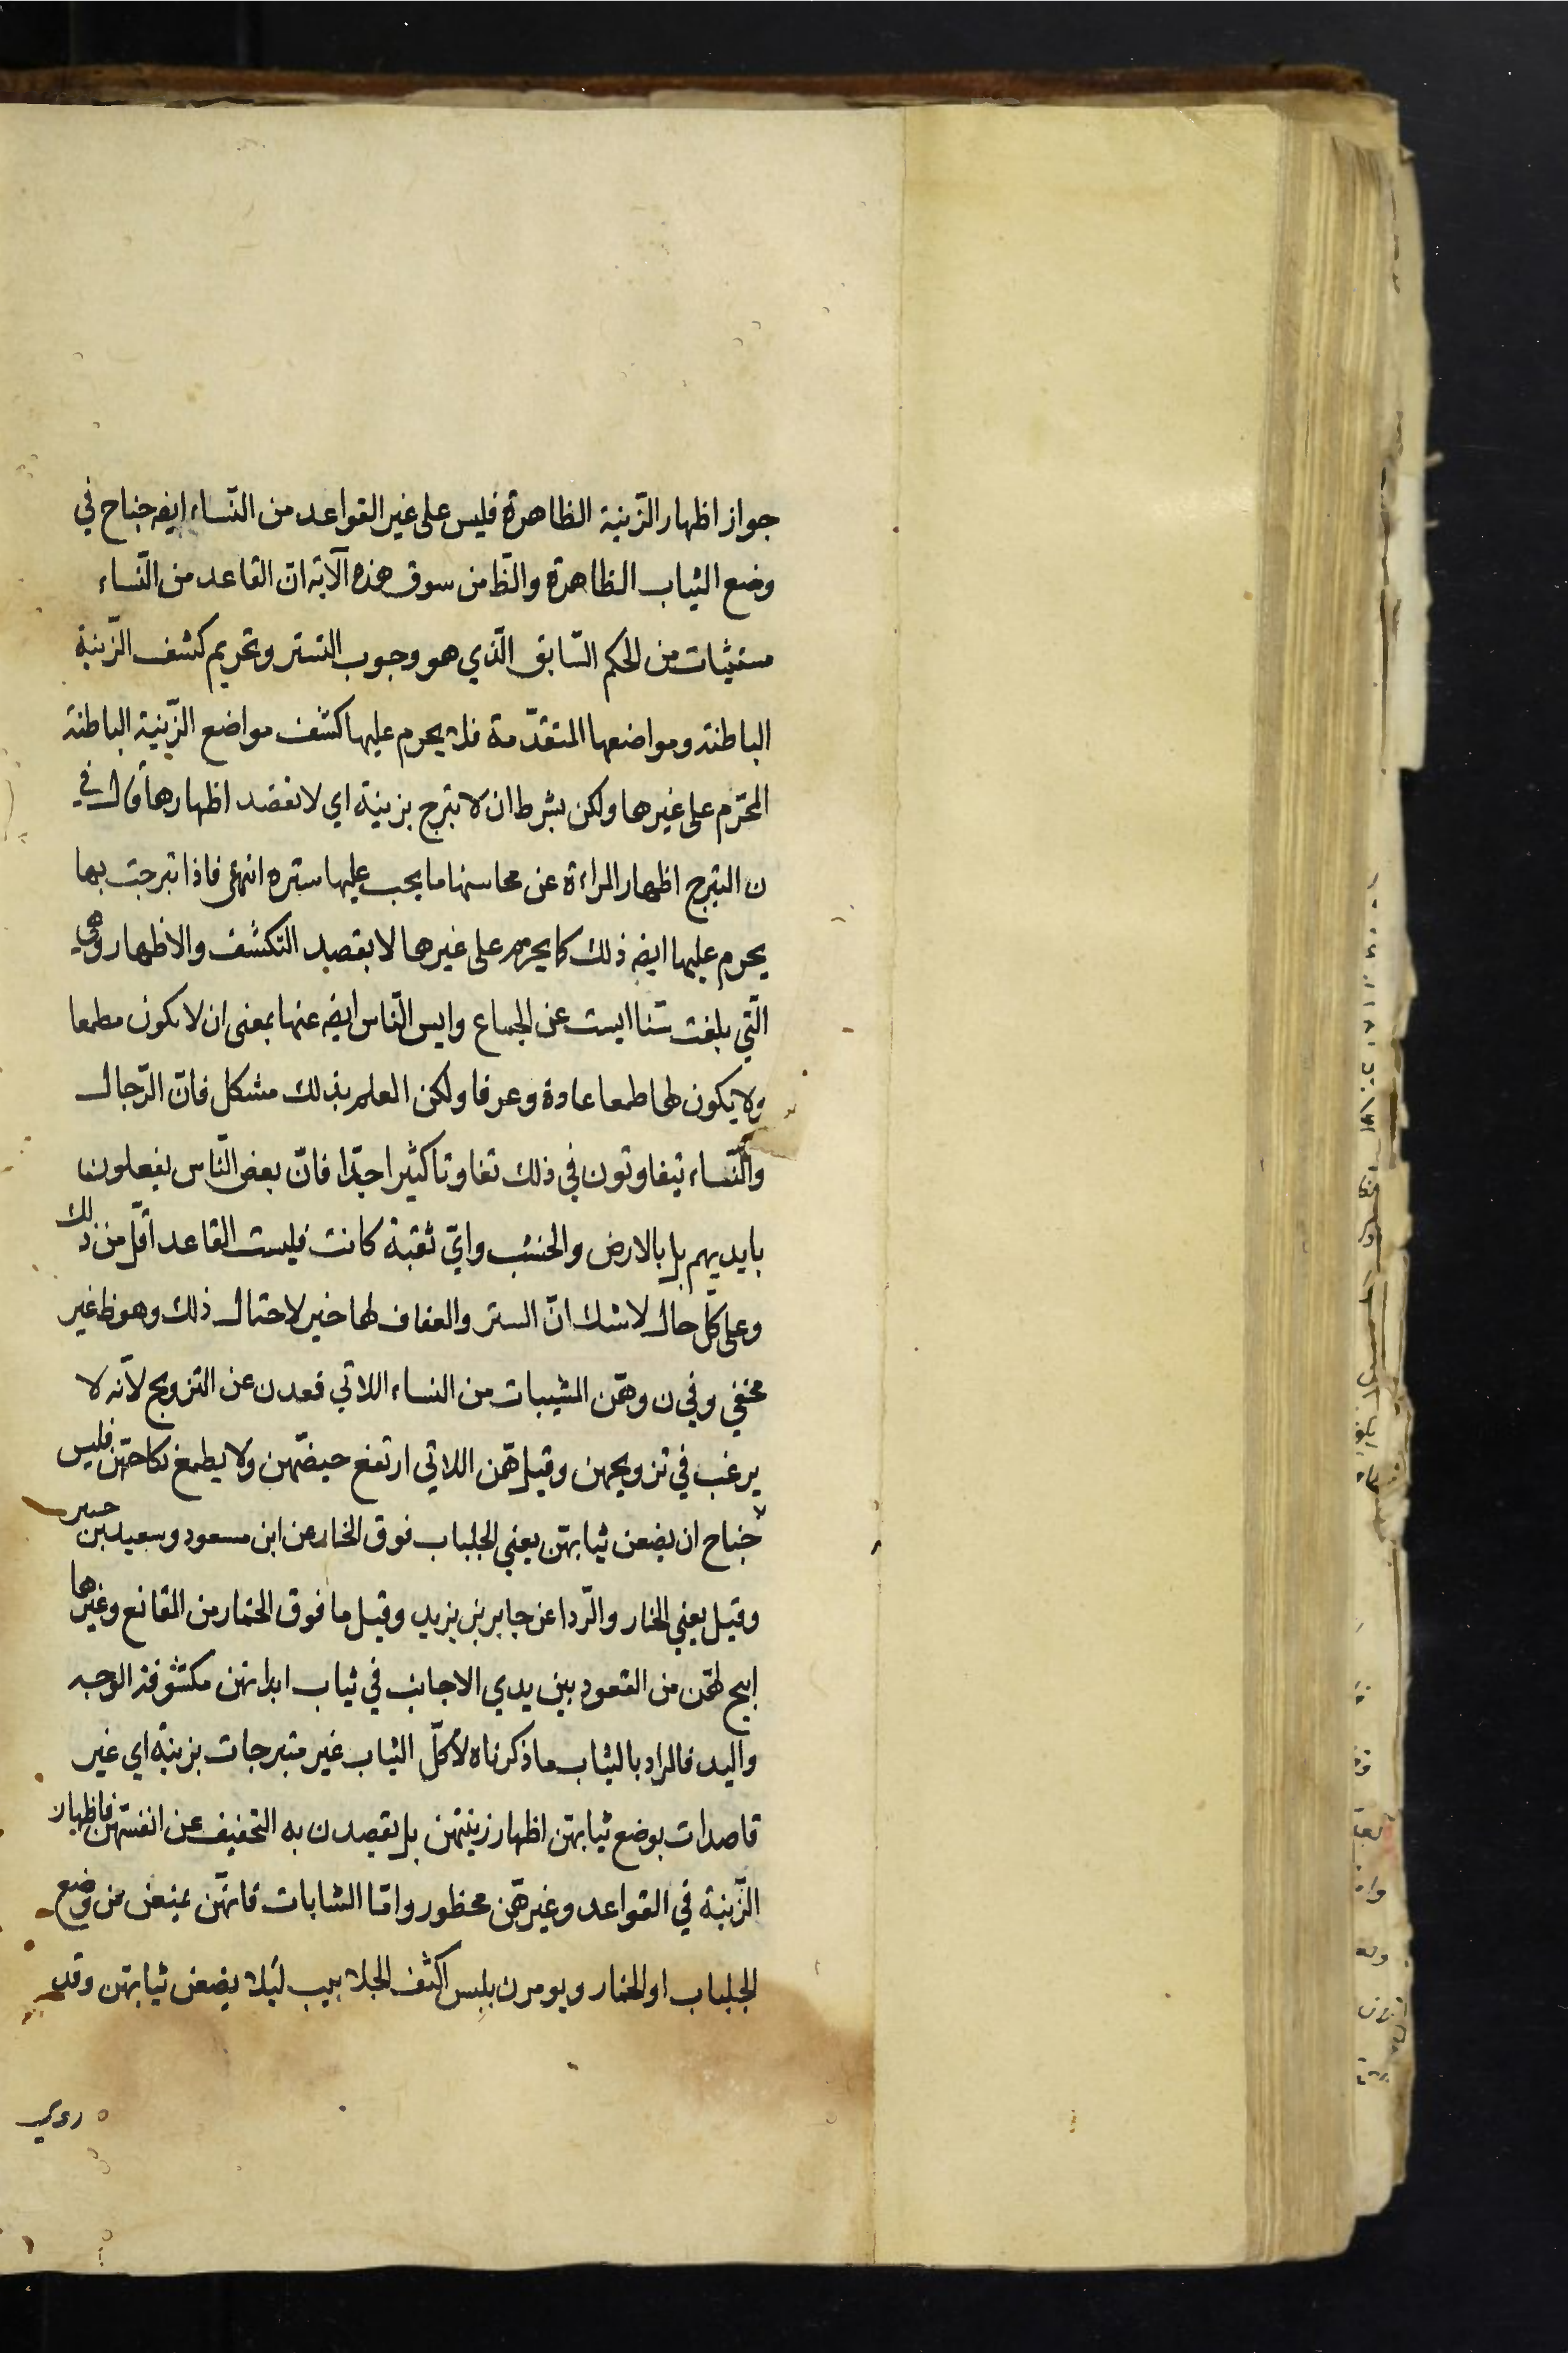 جواز اظهار الزّينة الظاهرة فليس على غير القواعد من النّساء ايضه جناح في
وضع الثياب الظاهرة والظ من سوق هذه الآية انّ القاعد من النّساء
مستثيات من الحكم السّابق الّذي هو وجوب التستر وتحريم كشف الزّينة
الباطنة ومواضعها المتقدّمة فلا يحرم عليها كشف مواضع الزّينة الباطنة
المحرّم على غيرها ولكن بشرط ان لا تبرج بزينة اي لا تقصد اظهارها قال في
ن التبرج اظهار المراءة عن محاسنها ما يجب عليها ستره انتهى فاذا تبرجت بها
يحرم عليها ايضه ذلك كما يحرم على غيرها لا بقصد التكشف والاظهار وهي
الّتي بلغت سنا ايست عن الجماع وايس النّاس ايضه عنها بمعنى ان لا تكون مطمعا
ولا يكون لها طمعا عادة وعرفا ولكن العلم بذلك مشكل فانّ الرّجال
والنّساء يتفاوتون في ذلك تفاوتا كثيرا جدّا فانّ بعض النّاس يفعلون
بايديهم بل بالارض والخشب وايّ ثقبة كانت فليست القاعد اقلّ من ذلك
وعلى كلّ حال لا شك انّ الستر والعفاف لها خير لاحتمال ذلك وهو ظ غير
مخفي وفي ن وهنّ المسنّات من النساء اللاتي قعدن عن التزويج لانّه لا
يرغب في تزويجهن وقيل هنّ اللاتي ارتفع حيضهنّ ولا يطمع نكاحهنّ فليس
جناح ان يضعن ثيابهنّ يعني الجلباب فوق الخمار عن ابن مسعود وسعيد بن جبير
وقيل يعني الخمار والرّدا عن جابر بن يزيد وقيل ما فوق الخمار من المقانع وغيرها
ابيح لهنّ من القعود بين يدي الاجانب في ثياب ابدانهن مكشوفة الوجه
واليد فالمراد بالثياب ما ذكرناه لا كلّ الثياب غير متبرجات بزينة اي غير
قاصدات بوضع ثيابهنّ اظهار زينتهن بل يقصدن به التخفيف عن انفسهنّ فاظهار
الزّينة في القواعد وغيرهنّ محظور وامّا الشابات فانهّن يمنعن من وضع
الجلباب او الخمار ويومرن بلبس اكثف الجلابيب لئلا يضعن ثيابهن وقد
روي